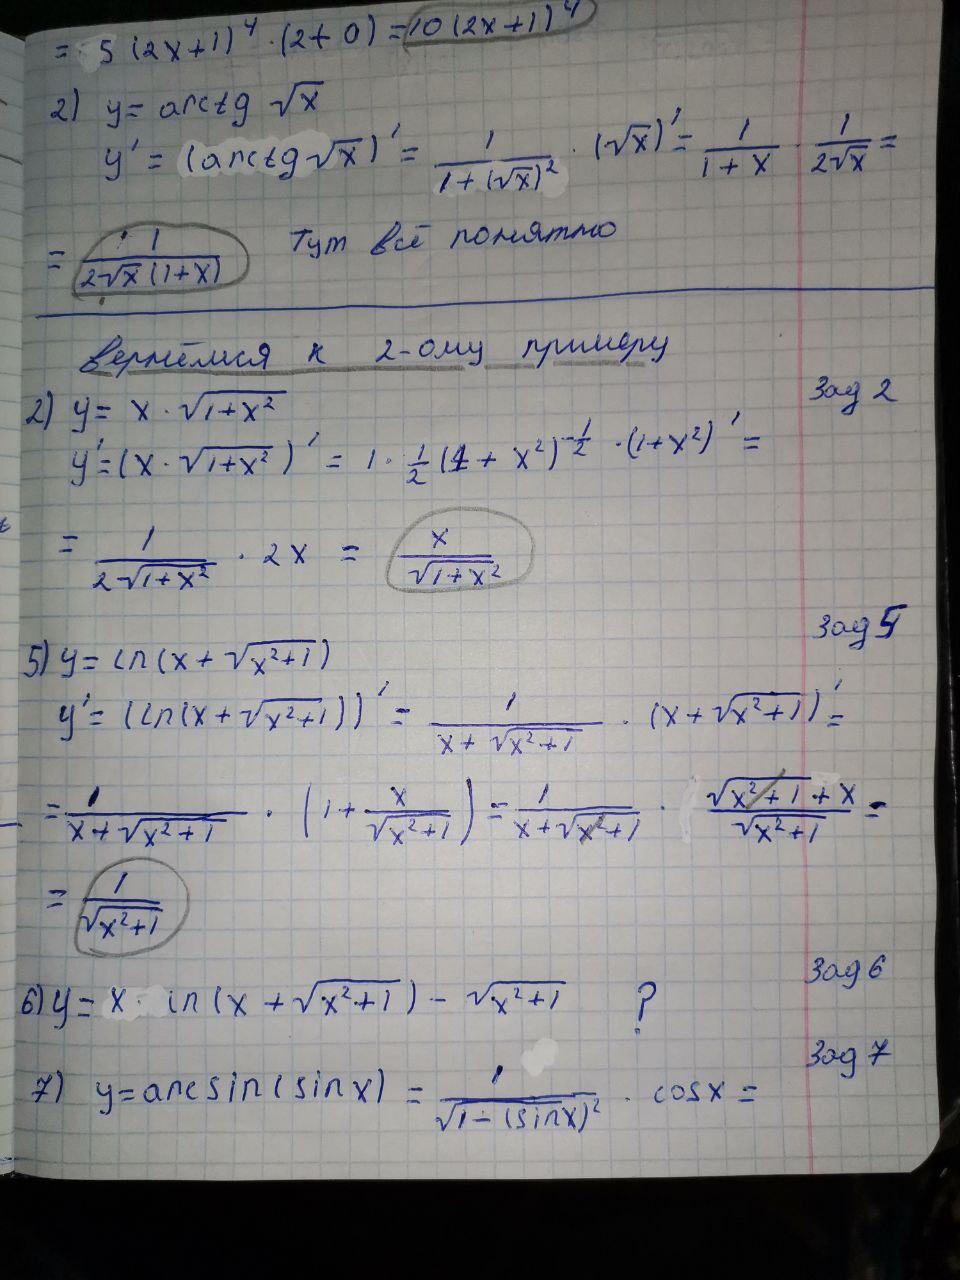 = 5 (2x+1)⁴ · (2+0) = 10(2x+1)⁴
2) y = arctg √x
y' = (arctg √x)' = 1/(1+(√x)²) · (√x)' = 1/(1+x) · 1/(2√x) =
= 1/(2√x (1+x)) Тут всё понятно
Вернёмся к 2-ому примеру
Зад 2
2) y = x · √(1+x²)
y' = (x · √(1+x²))' = 1 · 1/2 (1 + x²)^(-1/2) · (1+x²)' =
= 1/(2√(1+x²)) · 2x = x/√(1+x²)
Зад 5
5) y = ln(x + √(x²+1))
y' = (ln(x + √(x²+1)))' = 1/(x + √(x²+1)) · (x + √(x²+1))' =
= 1/(x + √(x²+1)) · (1 + x/√(x²+1)) = 1/(x + √(x²+1)) · (√(x²+1) + x)/√(x²+1) =
= 1/√(x²+1)
Зад 6
6) y = x · ln(x + √(x²+1)) - √(x²+1) ?
Зад 7
7) y = arcsin(sinx) = 1/√(1-(sinx)²) · cosx =